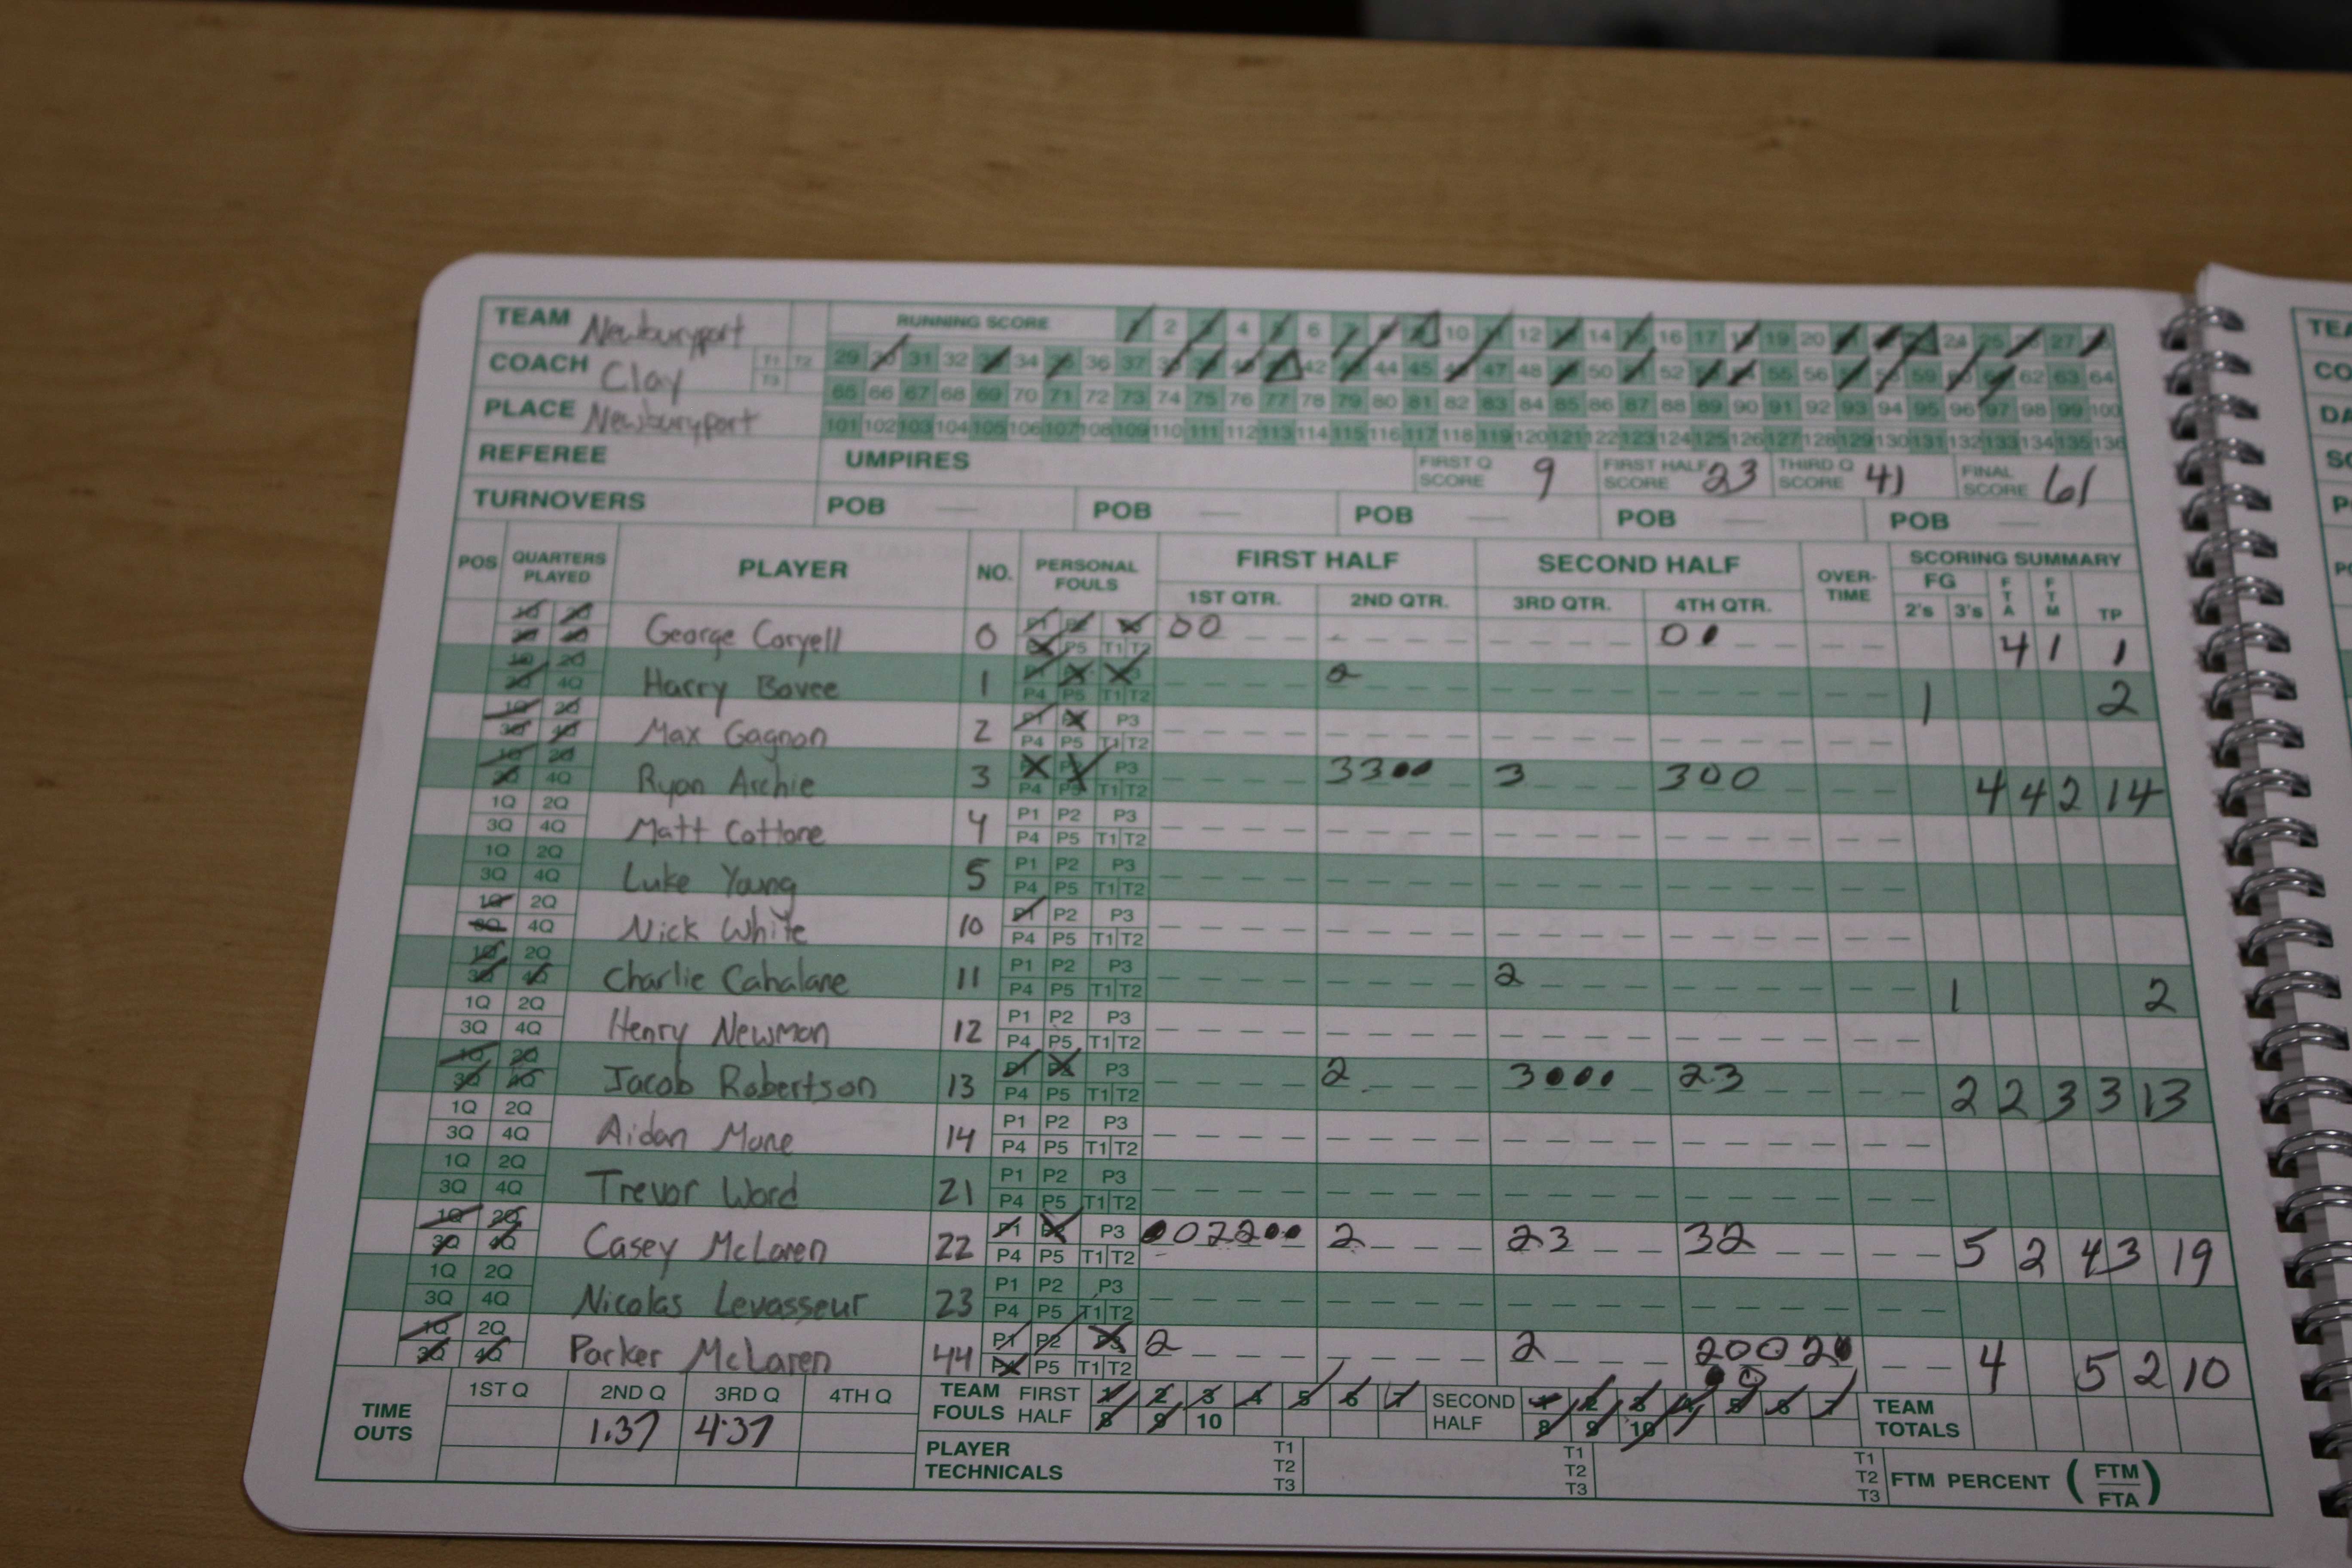 TEAM Newburyport RUNNING SCORE 1 2 3 4 5 6 7 8 9 10 11 12 13 14 15 16 17 18 19 20 21 22 23 24 25 26 27 28
COACH Clay T1 T2 T3 29 30 31 32 33 34 35 36 37 38 39 40 41 42 43 44 45 46 47 48 49 50 51 52 53 54 55 56 57 58 59 60 61 62 63 64
65 66 67 68 69 70 71 72 73 74 75 76 77 78 79 80 81 82 83 84 85 86 87 88 89 90 91 92 93 94 95 96 97 98 99 100
PLACE Newburyport 101 102 103 104 105 106 107 108 109 110 111 112 113 114 115 116 117 118 119 120 121 122 123 124 125 126 127 128 129 130 131 132 133 134 135 136
REFEREE UMPIRES FIRST Q SCORE 9 FIRST HALF SCORE 23 THIRD Q SCORE 41 FINAL SCORE 61
TURNOVERS POB POB POB POB POB
POS QUARTERS PLAYED PLAYER NO. PERSONAL FOULS FIRST HALF SECOND HALF OVER-TIME SCORING SUMMARY
1ST QTR. 2ND QTR. 3RD QTR. 4TH QTR. FG 2's 3's FTA FTM TP
1Q 2Q 3Q 4Q George Coryell 0 P1 P2 P3 P4 P5 T1 T2 00 0 4 1 1
1Q 2Q 3Q 4Q Harry Bovee 1 P1 P2 P3 P4 P5 T1 T2 2 1 2
1Q 2Q 3Q 4Q Max Gagnon 2 P1 P2 P3 P4 P5 T1 T2
1Q 2Q 3Q 4Q Ryan Archie 3 P1 P2 P3 P4 P5 T1 T2 33 3 300 4 4 2 14
1Q 2Q 3Q 4Q Matt Cottone 4 P1 P2 P3 P4 P5 T1 T2
1Q 2Q 3Q 4Q Luke Young 5 P1 P2 P3 P4 P5 T1 T2
1Q 2Q 3Q 4Q Nick White 10 P1 P2 P3 P4 P5 T1 T2
1Q 2Q 3Q 4Q Charlie Cahalane 11 P1 P2 P3 P4 P5 T1 T2 2 1 2
1Q 2Q 3Q 4Q Henry Newman 12 P1 P2 P3 P4 P5 T1 T2
1Q 2Q 3Q 4Q Jacob Robertson 13 P1 P2 P3 P4 P5 T1 T2 2 3 23 2 2 3 3 13
1Q 2Q 3Q 4Q Aidan Mane 14 P1 P2 P3 P4 P5 T1 T2
1Q 2Q 3Q 4Q Trevor Word 21 P1 P2 P3 P4 P5 T1 T2
1Q 2Q 3Q 4Q Casey McLaren 22 P1 P2 P3 P4 P5 T1 T2 0022 2 23 32 5 2 4 3 19
1Q 2Q 3Q 4Q Nicolas Levasseur 23 P1 P2 P3 P4 P5 T1 T2
1Q 2Q 3Q 4Q Parker McLaren 44 P1 P2 P3 P4 P5 T1 T2 2 2 2002 4 5 2 10
TIME OUTS 1ST Q 2ND Q 3RD Q 4TH Q TEAM FOULS FIRST HALF 1 2 3 4 5 6 7 8 9 10 SECOND HALF 1 2 3 4 5 6 7 8 9 10 TEAM TOTALS
1:37 4:37
PLAYER TECHNICALS T1 T2 T3 T1 T2 T3 T1 T2 T3 FTM PERCENT (FTM/FTA)
TEA
CO
DA
SC
P
PO